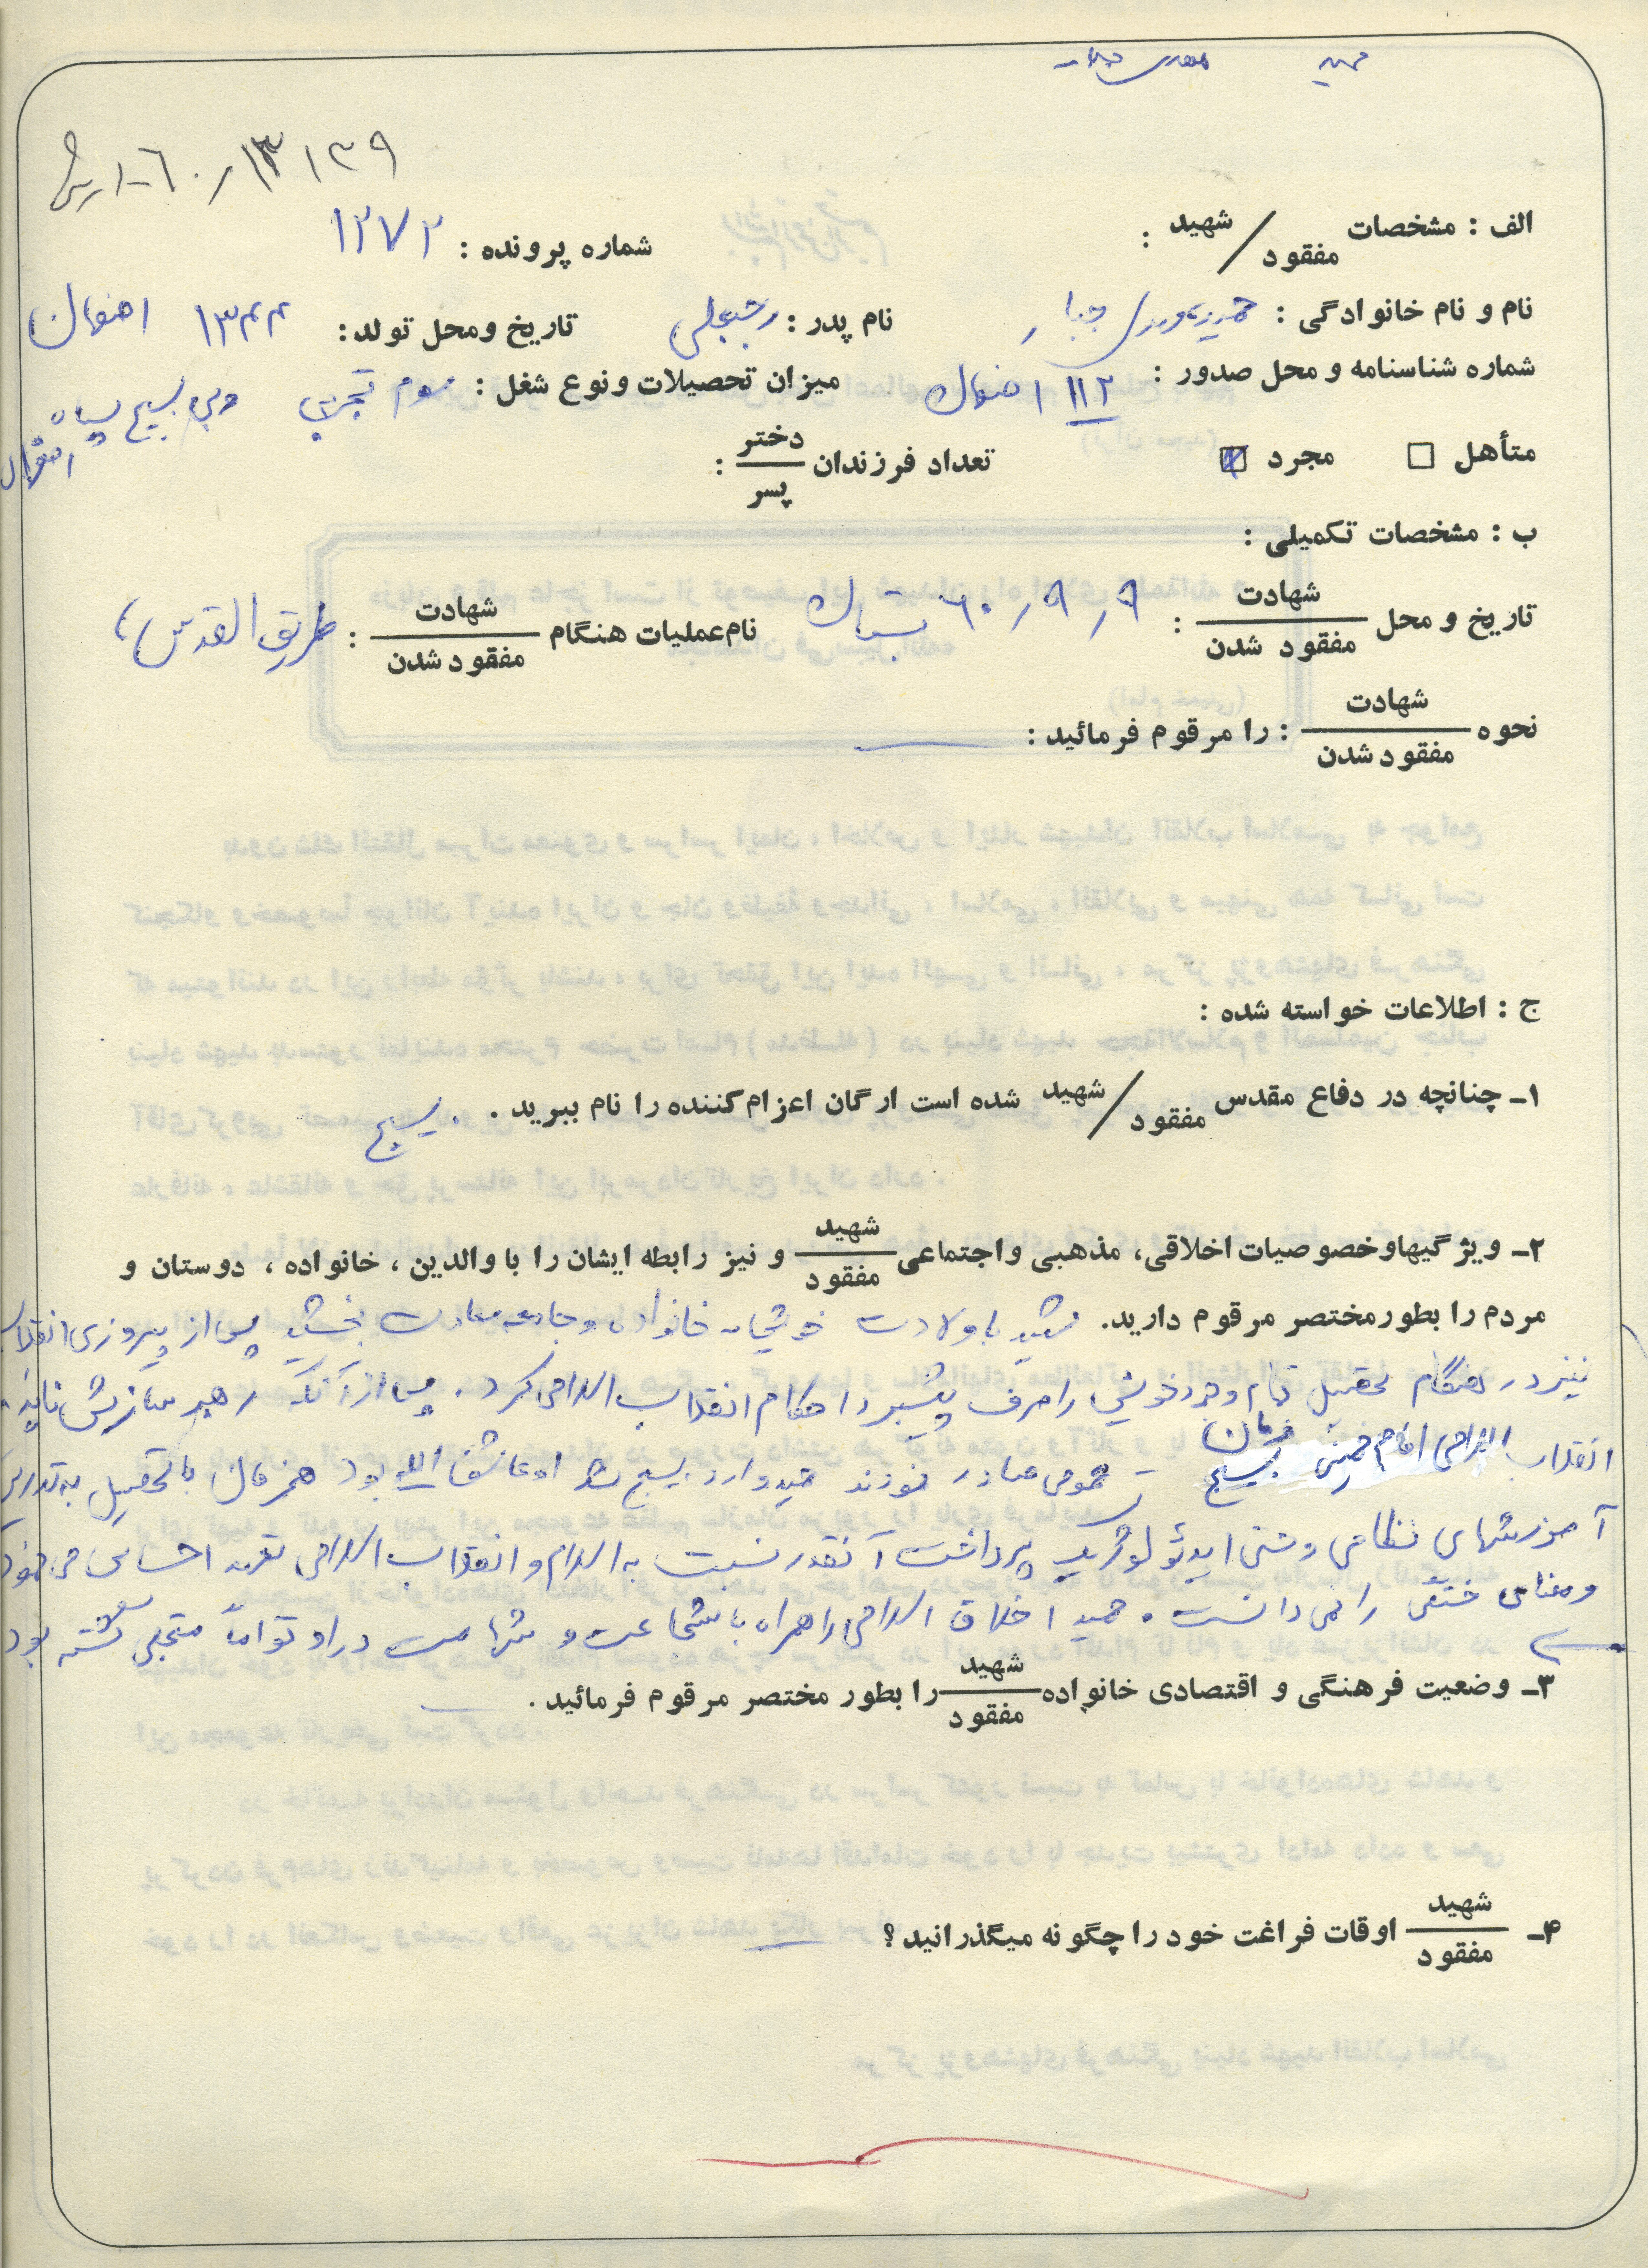 حمید مهدی جبار
۱۳۱۳۹ / ۶۰-۱
الف : مشخصات شهید / مفقود :
شماره پرونده : ۱۲۷۲
نام و نام خانوادگی : حمید مهدی جبار نام پدر : رجبعلی تاریخ ومحل تولد : ۱۳۴۴ اصفهان
شماره شناسنامه و محل صدور : ۱۱۲ اصفهان میزان تحصیلات ونوع شغل : سوم تجربی بسیج سپاه اصفهان
متأهل ☐ مجرد ☑ تعداد فرزندان دختر / پسر :
ب : مشخصات تکمیلی :
تاریخ و محل شهادت / مفقود شدن : ۶۰/۹/۹ بستان نام عملیات هنگام شهادت / مفقود شدن : طریق القدس
نحوه شهادت / مفقود شدن : را مرقوم فرمائید : —
ج : اطلاعات خواسته شده :
۱- چنانچه در دفاع مقدس شهید / مفقود شده است ارگان اعزام کننده را نام ببرید . بسیج
۲- ویژگیهاوخصوصیات اخلاقی، مذهبی واجتماعی شهید / مفقود و نیز رابطه ایشان را با والدین ، خانواده ، دوستان و
مردم را بطور مختصر مرقوم دارید. شهید با ولادت خویش به خانواده و جامعه سعادت بخشید پس از پیروزی انقلاب
نیز در هنگام تحصیل تمام وجود خویش را صرف پیشبرد احکام انقلاب اسلامی کرد . پس از آنکه رهبر سازش ناپذیر
انقلاب اسلامی امام خمینی فرمان بسیج عمومی صادر نمودند حمید وارد بسیج شد او عاشق الله بود همزمان با تحصیل به تدریس
آموزشهای نظامی و حتی ایدئولوژیک پرداخت آنقدر نسبت به اسلام و انقلاب اسلامی تعهد احساس می نمود
و معنای خستگی را نمی دانست . حمید اخلاق اسلامی را همراه با شجاعت و شهامت در او تواماً متجلی گشته بود
۳- وضعیت فرهنگی و اقتصادی خانواده شهید / مفقود را بطور مختصر مرقوم فرمائید . —
۴- شهید / مفقود اوقات فراغت خود را چگونه میگذرانید ؟ —